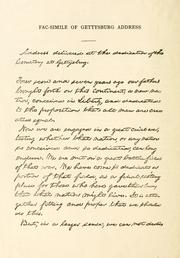 FAC-SIMILE OF GETTYSBURG ADDRESS
Address delivered at the dedication of the
Cemetery at Gettysburg.
Four score and seven years ago our fathers
brought forth on this continent, a new na-
tion, conceived in Liberty, and dedicated
to the proposition that all men are cre-
ated equal.
Now we are engaged in a great civil war,
testing whether that nation, or any nation
so conceived and so dedicated, can long
endure. We are met on a great battle-field
of that war. We have come to dedicate a
portion of that field, as a final resting
place for those who here gave their lives
that that nation might live. It is alto-
gether fitting and proper that we should
do this.
But, in a larger sense, we can not dedi-